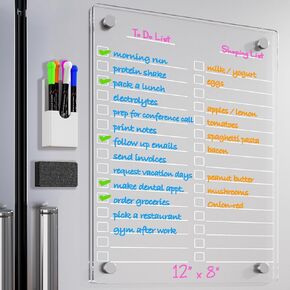 To Do List
morning run
protein shake
pack a lunch
electrolytes
prep for conference call
print notes
follow up emails
send invoices
request vacation days
make dental appt.
order groceries
pick a restaurant
gym after work
Shopping List
milk / yogurt
eggs
apples / lemon
tomatoes
spaghetti pasta
bacon
peanut butter
mushrooms
Onion-red
12" x 8"